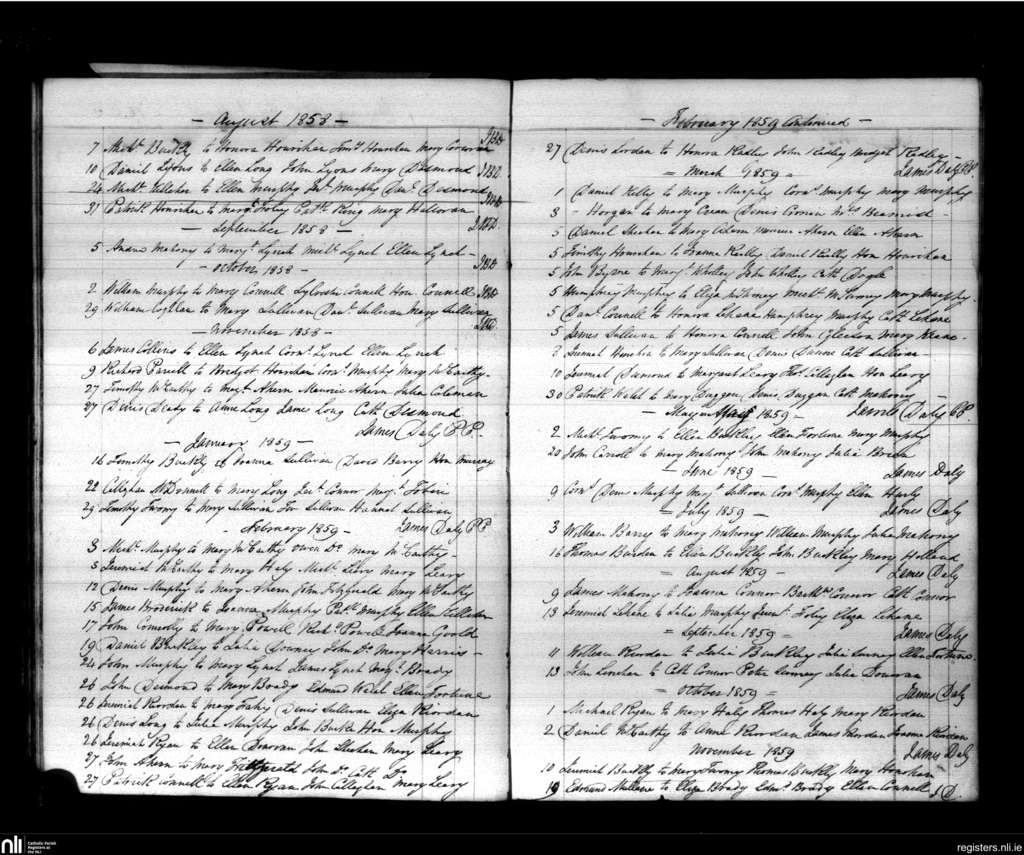 - August 1858 -
7 Mich.l Buckly to Honora Hourihan Mary
10 Daniel Lyons to Ellen Long John Lyons Mary Desmond
24 Mich.l Kelleher to Ellen Murphy Murphy Dan.l Desmond
31 Patrick Hourihan to Marg.t Foley Cath. King Mary Halloran
- September 1858 -
5 Mahony to Marg.t Lynch Mich.l Lynch Ellen Lynch -
- October 1858 -
2 William Murphy to Mary Connell Sylvester Connell Hon. Connell
29 William Coghlan to Mary Sullivan Dan.l Sullivan Mary Sullivan
- November 1858 -
6 James Collins to Ellen Lynch Corn.s Lynch Ellen Lynch
9 Richard to Bridget Hourihan Corn.s Murphy Mary McCarthy
27 Timothy McCarthy to Marg.t Ahern Maurice Ahern Julia Coleman
27 Denis Deady to Anne Long James Long Cath. Desmond
James Daly P.P.
- January 1859 -
16 Timothy Buckly to Joanna Sullivan David Barry Hon Murray
22 Callaghan McDonnell to Mary Long Connor Marg.t Tobin
29 Timothy Twomy to Mary Sullivan Sullivan Hannah Sullivan
- February 1859 - James Daly P.P.
3 Mich.l Murphy to Mary McCarthy Owen Do. Mary McCarthy -
3 Jeremiah McCarthy to Mary Haly Mich.l Leary Mary Leary
12 Denis Murphy to Mary Ahern John Fitzgerald Mary McCarthy
15 James Broderick to Joanna Murphy Pat.k Murphy Ellen
17 John Connolly to Mary Powell Rich.d Powell Joanna Goold
19 Daniel Buckley to Julia Downey John Do. Mary Harris -
24 John Murphy to Mary Lynch James Lynch Mary Brady
26 John Desmond to Mary Brady Edmund Walsh Ellen Fortune
26 Jeremiah Riordan to Mary Denis Sullivan Eliza Riordan
26 Denis Long to Julia Murphy John Burke Hon Murphy
26 Jeremiah Ryan to Ellen Donovan John Sheehan Mary Leary
27 John Ahern to Mary Fitzgerald John Do. Cath. Do.
27 Patrick Connell to Ellen Ryan John Callaghan Mary Leary
- February 1859 Continued -
27 Denis Lordan to Honora Radley John Radley Bridget Radley -
= March 1859 = James Daly P.P.
1 Daniel Kelly to Mary Murphy Corn.s Murphy Mary Murphy
3 - Horgan to Mary Crean Denis Mrs. Beamish -
5 Daniel Sheehan to Mary Maurice Ahern Ellen Ahern
5 Timothy Hourihan to Joanna Daniel Hon Hourihan
5 John Byrne to Mary Whelley John Whelley Cath. Doyle
5 Humphrey Murphey to Eliza Mich.l Mary Murphy
5 Dan.l Connell to Honora Lehane Humphrey Murphy Cath. Lehane
5 James Sullivan to Honora Connell John Gleeson Mary
Jeremiah to Mary Sullivan Denis Cath. Sullivan
10 Jeremiah Desmond to Margaret Leary Callaghan Hon Leary
30 Patrick Walsh to Mary Duggan Denis Duggan Cath. Mahony
- May 1859 - James Daly P.P.
2 Mich.l Twomy to Ellen Buckley Ellen Fortune Mary Murphy
20 John Carroll to Mary Mahony John Mahony Julia Brien
- June 1859 - James Daly
9 Corn.s Denis Murphy Marg.t Sullivan Corn.s Murphy Ellen
= July 1859 - James Daly
3 William Barry to Mary Mahony William Murphy Julia Mahony
16 Thomas Burden to Eliza Buckley John Buckley Mary Holland
= August 1859 - James Daly
9 James Mahony to Joanna Connor Connor Cath. Connor
13 Jeremiah Lehane to Julia Murphy Foley Eliza Lehane
= September 1859 = James Daly
11 William Riordan to Julia Buckley Julia Ellen Fortune
13 John to Cath. Connor Peter Julia Donovan
= October 1859 = James Daly
1 Michael Ryan to Mary Haly Thomas Haly Mary Riordan
2 Daniel McCarthy to Anne Riordan James Riordan Joanna Riordan
November 1859 James Daly
10 Jeremiah Buckly to Mary Twomy Thomas Buckly Mary Hourihan
19 Edmund Mullane to Eliza Brady Edm.d Brady Ellen Connell J.D.
nli
Catholic Parish
Registers at
the NLI
registers.nli.ie